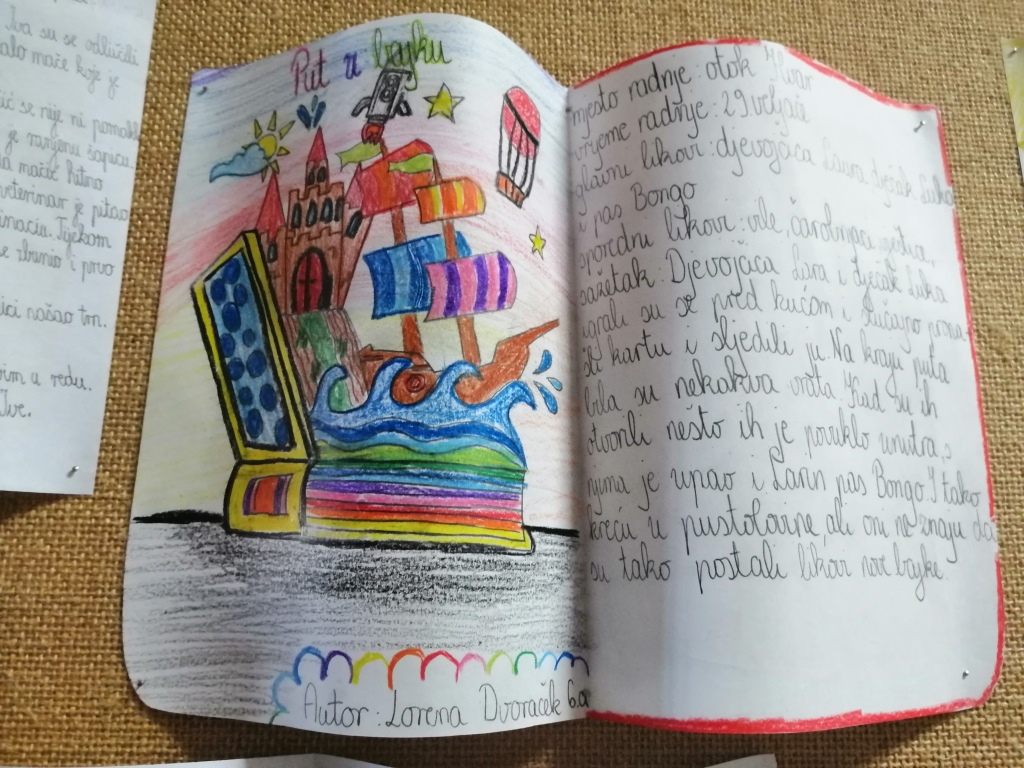 Iva su se odlučili
malo mače koje je
se nije ni pomakl
je ranjenu šapicu.
mačić hitno
veterinar je pitao
Tijekom
se zbunio i prvo
našao tm.
u redu.
Ive.
Put u bajku
Autor: Lorena Dvoraček 6.a
mjesto radnje: otok Hvar
vrijeme radnje: 29. veljače
glavni likovi: djevojčica Lara dječak Luka
i pas Bongo
sporedni likovi: vile, čarobnjaci,
sažetak: Djevojčica Lara i dječak Luka
igrali su se pred kućom i slučajno prona-
šli kartu i sljedili ju. Na kraju puta
bila su nekakva vrata. Kad su ih
otvorili nešto ih je povuklo unutra, s
njima je upao i Larin pas Bongo. I tako
kreću u pustolovine, ali oni ne znaju da
su tako postali likovi nove bajke.